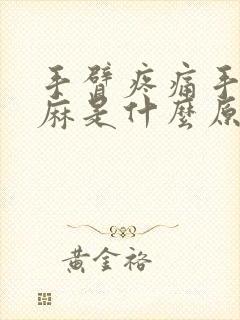 手臂疼痛手
麻是什麼原
黃金裕